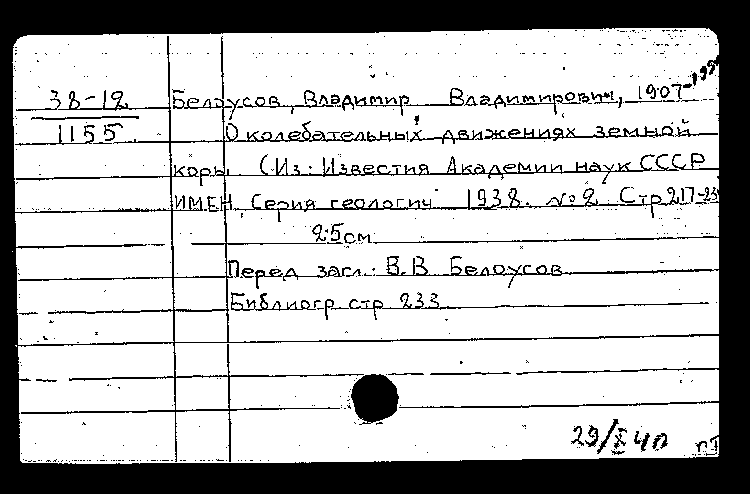 38-12
1155
Белоусов, Владимир Владимирович, 1907-
О колебательных движениях земной
коры. (Из: Известия Академии наук СССР
ИМЕН, Серия геологич 1938. № 2 Стр 217-
25 см.
Перед загл.: В.В Белоусов
Библиогр стр 233
29/X 40